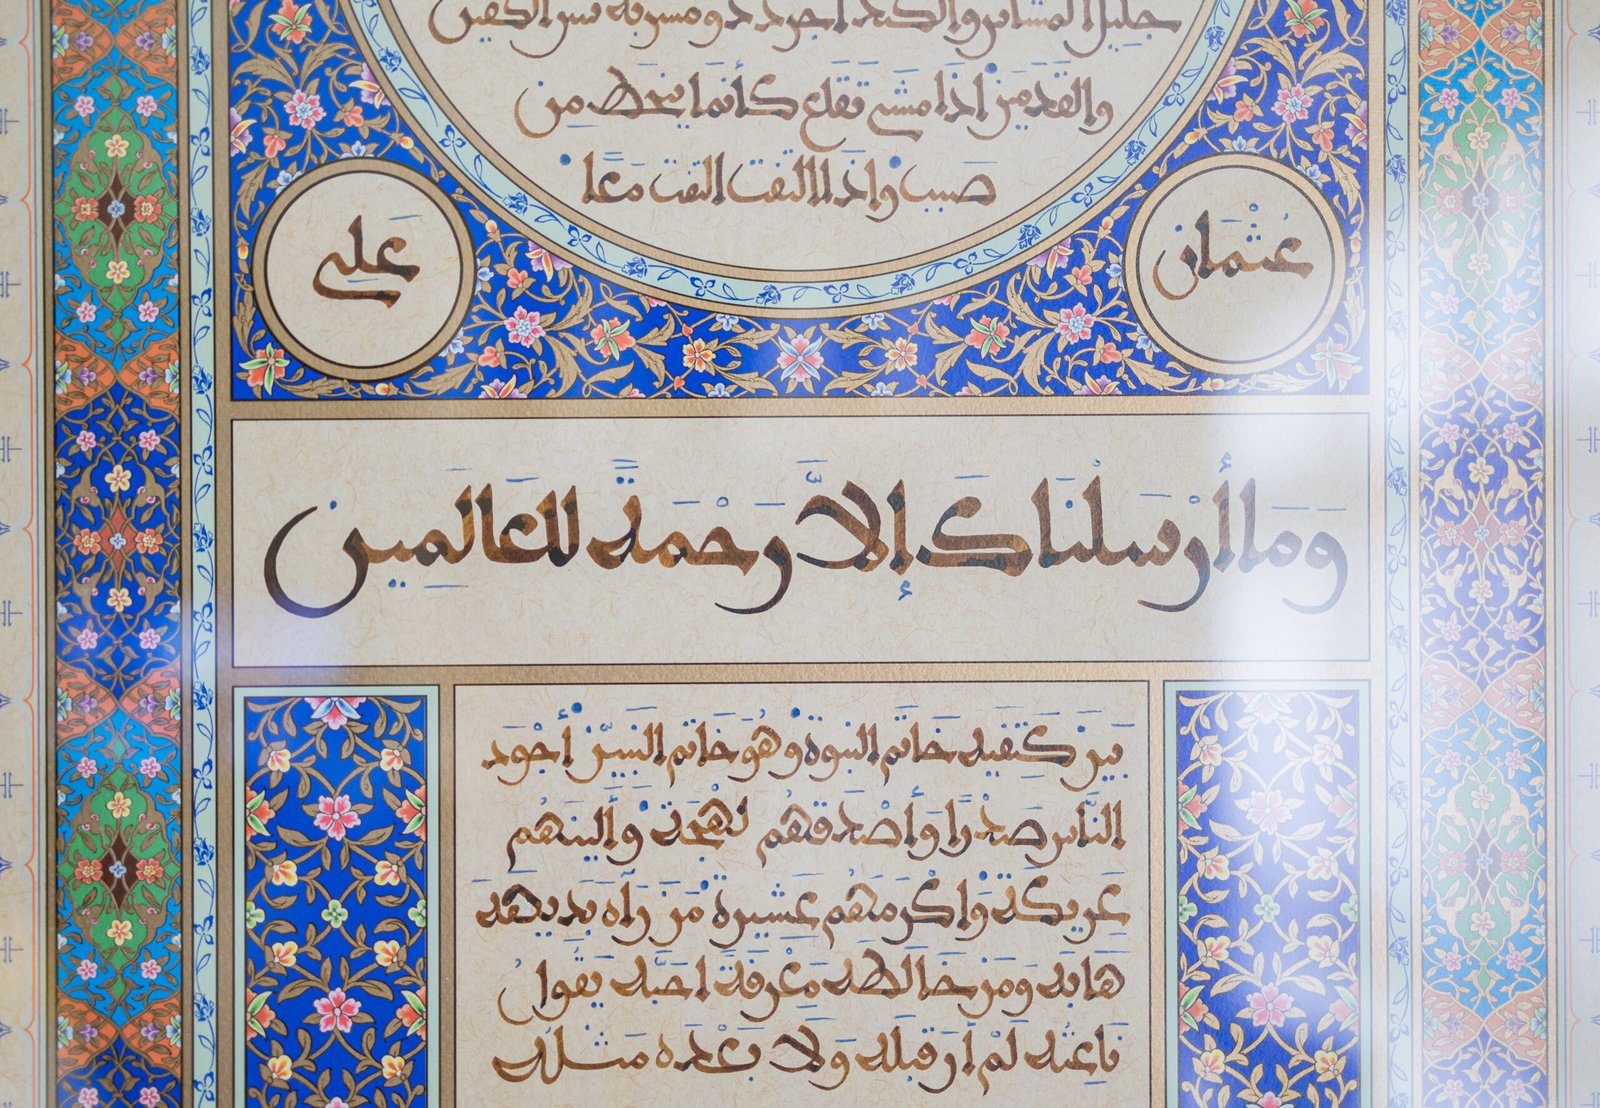 جليل المشاش والكتد أجرد ذو مسربة شثن الكفين
والقدمين إذا مشى تقلع كأنما ينحط من
صبب وإذا التفت التفت معًا
عُثْمَان
عَلي
وَمَا أَرْسَلْنَاكَ إِلاَّ رَحْمَةً لِلْعَالَمِين
بَين كَتِفيه خاتَم النبوة وهُوَ خاتم النبيّن أجْوَد
النَّاس صَدْرًا وَأصْدَقهُم لهْجَة وَألينهُم
عَرِيكَة وَاكْرمَهُم عَشِيرة مَن رَآه بَديهَة
هَابَه وَمَن خَالَطَه مَعْرِفَةً احَبَّه يَقُولُ
نَاعِتُه لَمْ أرَ قبْلَه وَلَا بَعْدَه مثْلَه